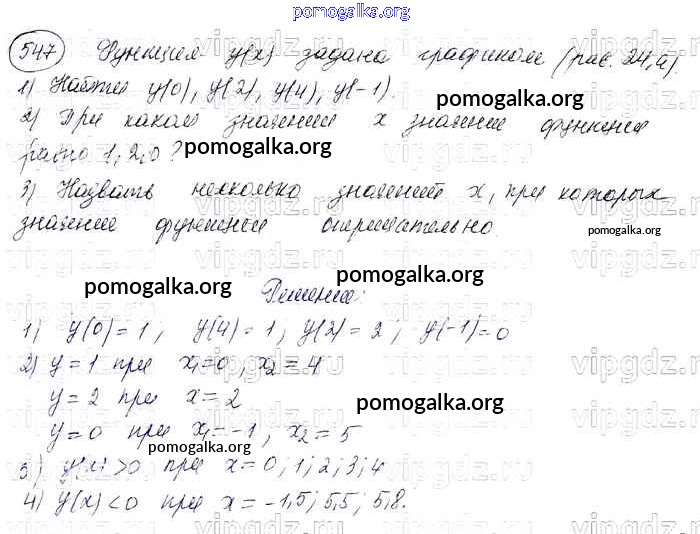 pomogalka.org
547 Функция y(x) задана графиком (рис. 24, а).
1) Найти y(0), y(2), y(4), y(-1).
pomogalka.org
2) При каком значении x значение функции
равно 1, 2, 0?
pomogalka.org
3) Назвать несколько значений x, при которых
значение функции отрицательно.
pomogalka.org
pomogalka.org
pomogalka.org
Решение:
1) y(0) = 1, y(4) = 1; y(2) = 2; y(-1) = 0
2) y = 1 при x₁=0, x₂ = 4
y = 2 при x = 2
pomogalka.org
y = 0 при x₁=-1, x₂ = 5
pomogalka.org
3) y(x) > 0 при x = 0; 1; 2; 3; 4
4) y(x) < 0 при x = -1,5; 5,5; 5,8.